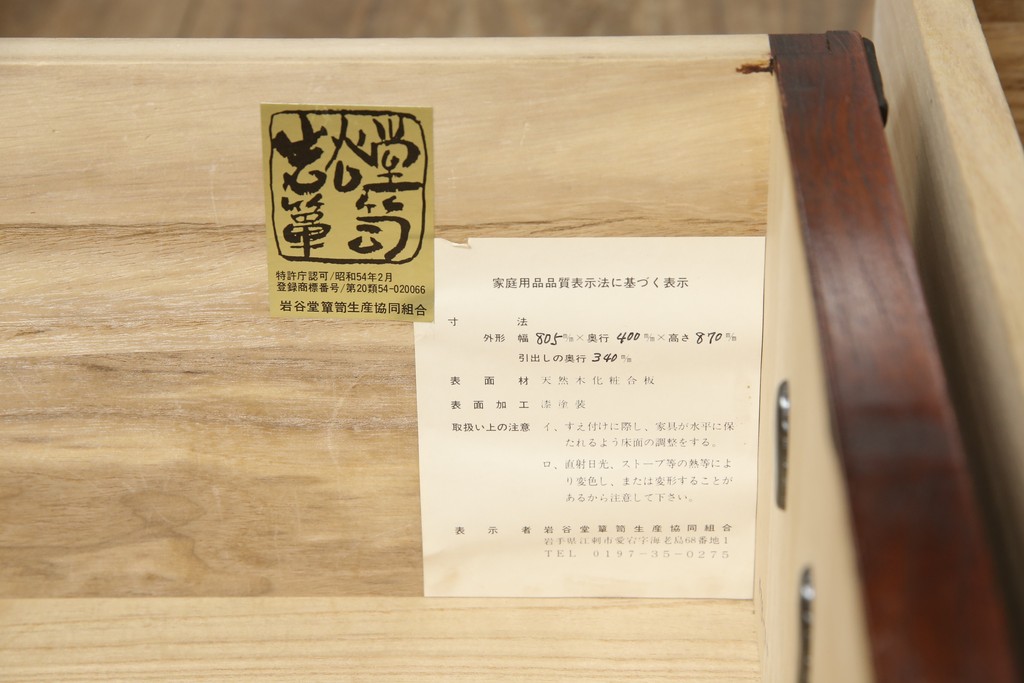 岩谷堂
簞笥
特許庁認可/昭和54年2月
登録商標番号/第20類54-020066
岩谷堂簞笥生産協同組合
家庭用品品質表示法に基づく表示
寸　法
外形 幅 805㎜×奥行 400㎜×高さ 870㎜
引出しの奥行 340㎜
表面材 天然木化粧合板
表面加工 漆塗装
取扱い上の注意 イ、すえ付けに際し、家具が水平に保
たれるよう床面の調整をする。
ロ、直射日光、ストーブ等の熱等によ
り変色し、または変形することが
あるから注意して下さい。
表示者 岩谷堂簞笥生産協同組合
岩手県江刺市愛宕字海老島68番地1
TEL 0197-35-0275